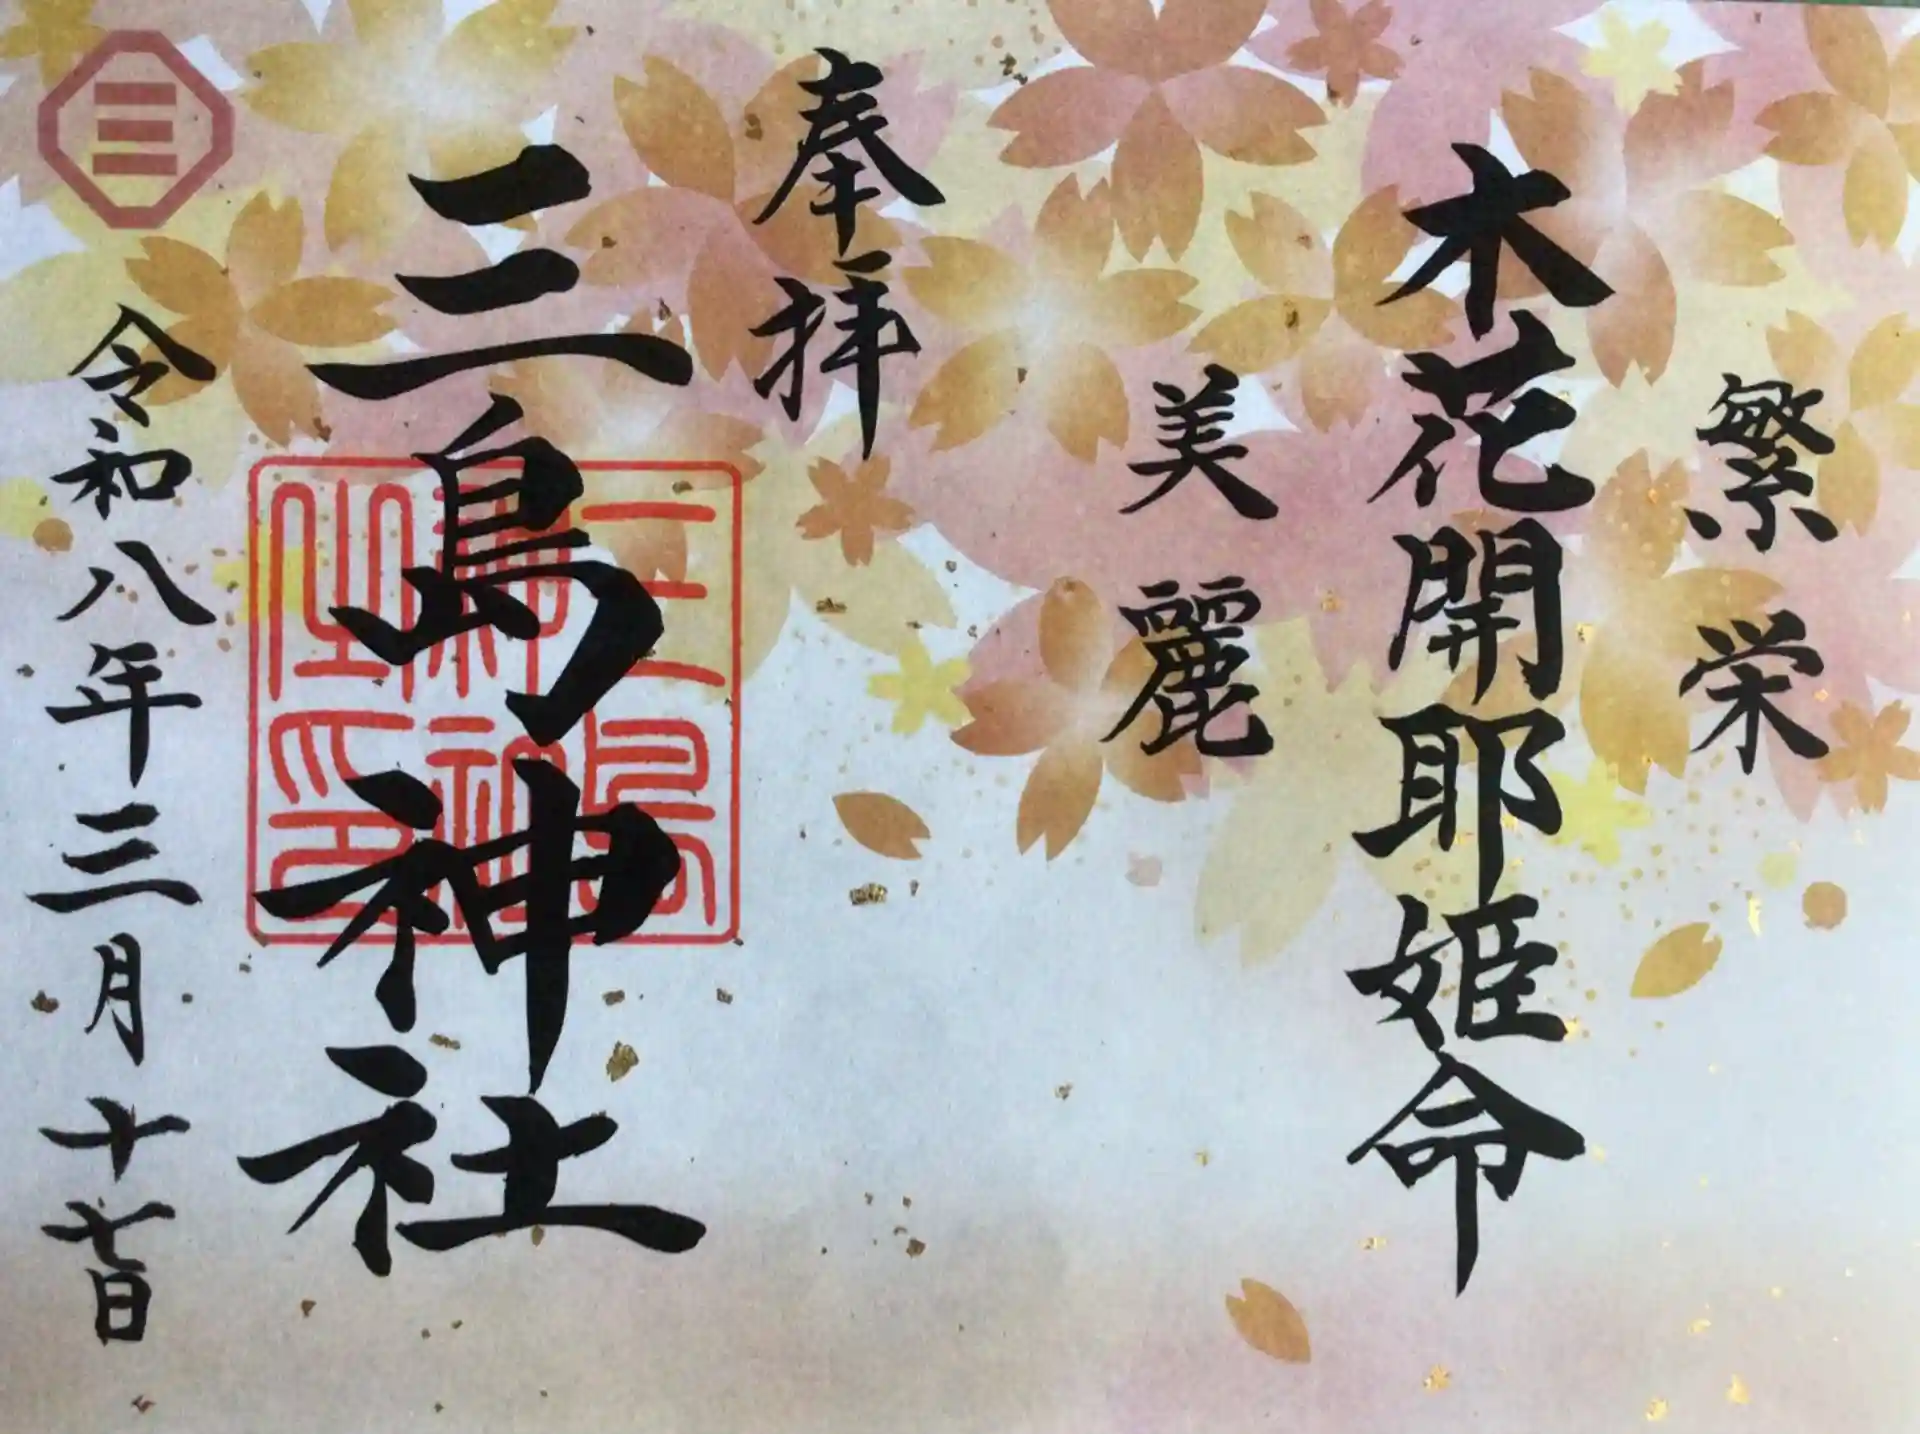 繁栄
木花開耶姫命
美麗
奉拝
三島神社
令和八年三月十七日
三島神社之印
三